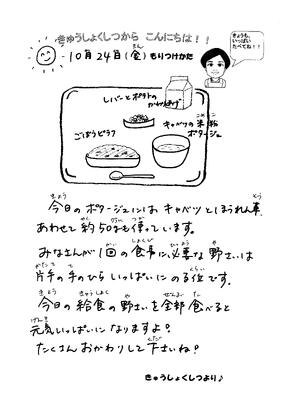 きゅうしょくしつから こんにちは！！
10月24日(金)もりつけかた
きょうも、
いっぱい
たべてね！！
レバーとポテトの
かりんとうあげ
ごぼうピラフ
キャベツの米粉
ポタージュ
今日のポタージュには キャベツとほうれん草、
あわせて約50㎏も使っています。
みなさんが1回の食事に必要な野さいは
片手の手のひらいっぱいにのる位です。
今日の給食の野さいを全部食べると
元気いっぱいになりますよ？
たくさんおかわりして下さいね？
きゅうしょくしつより♪